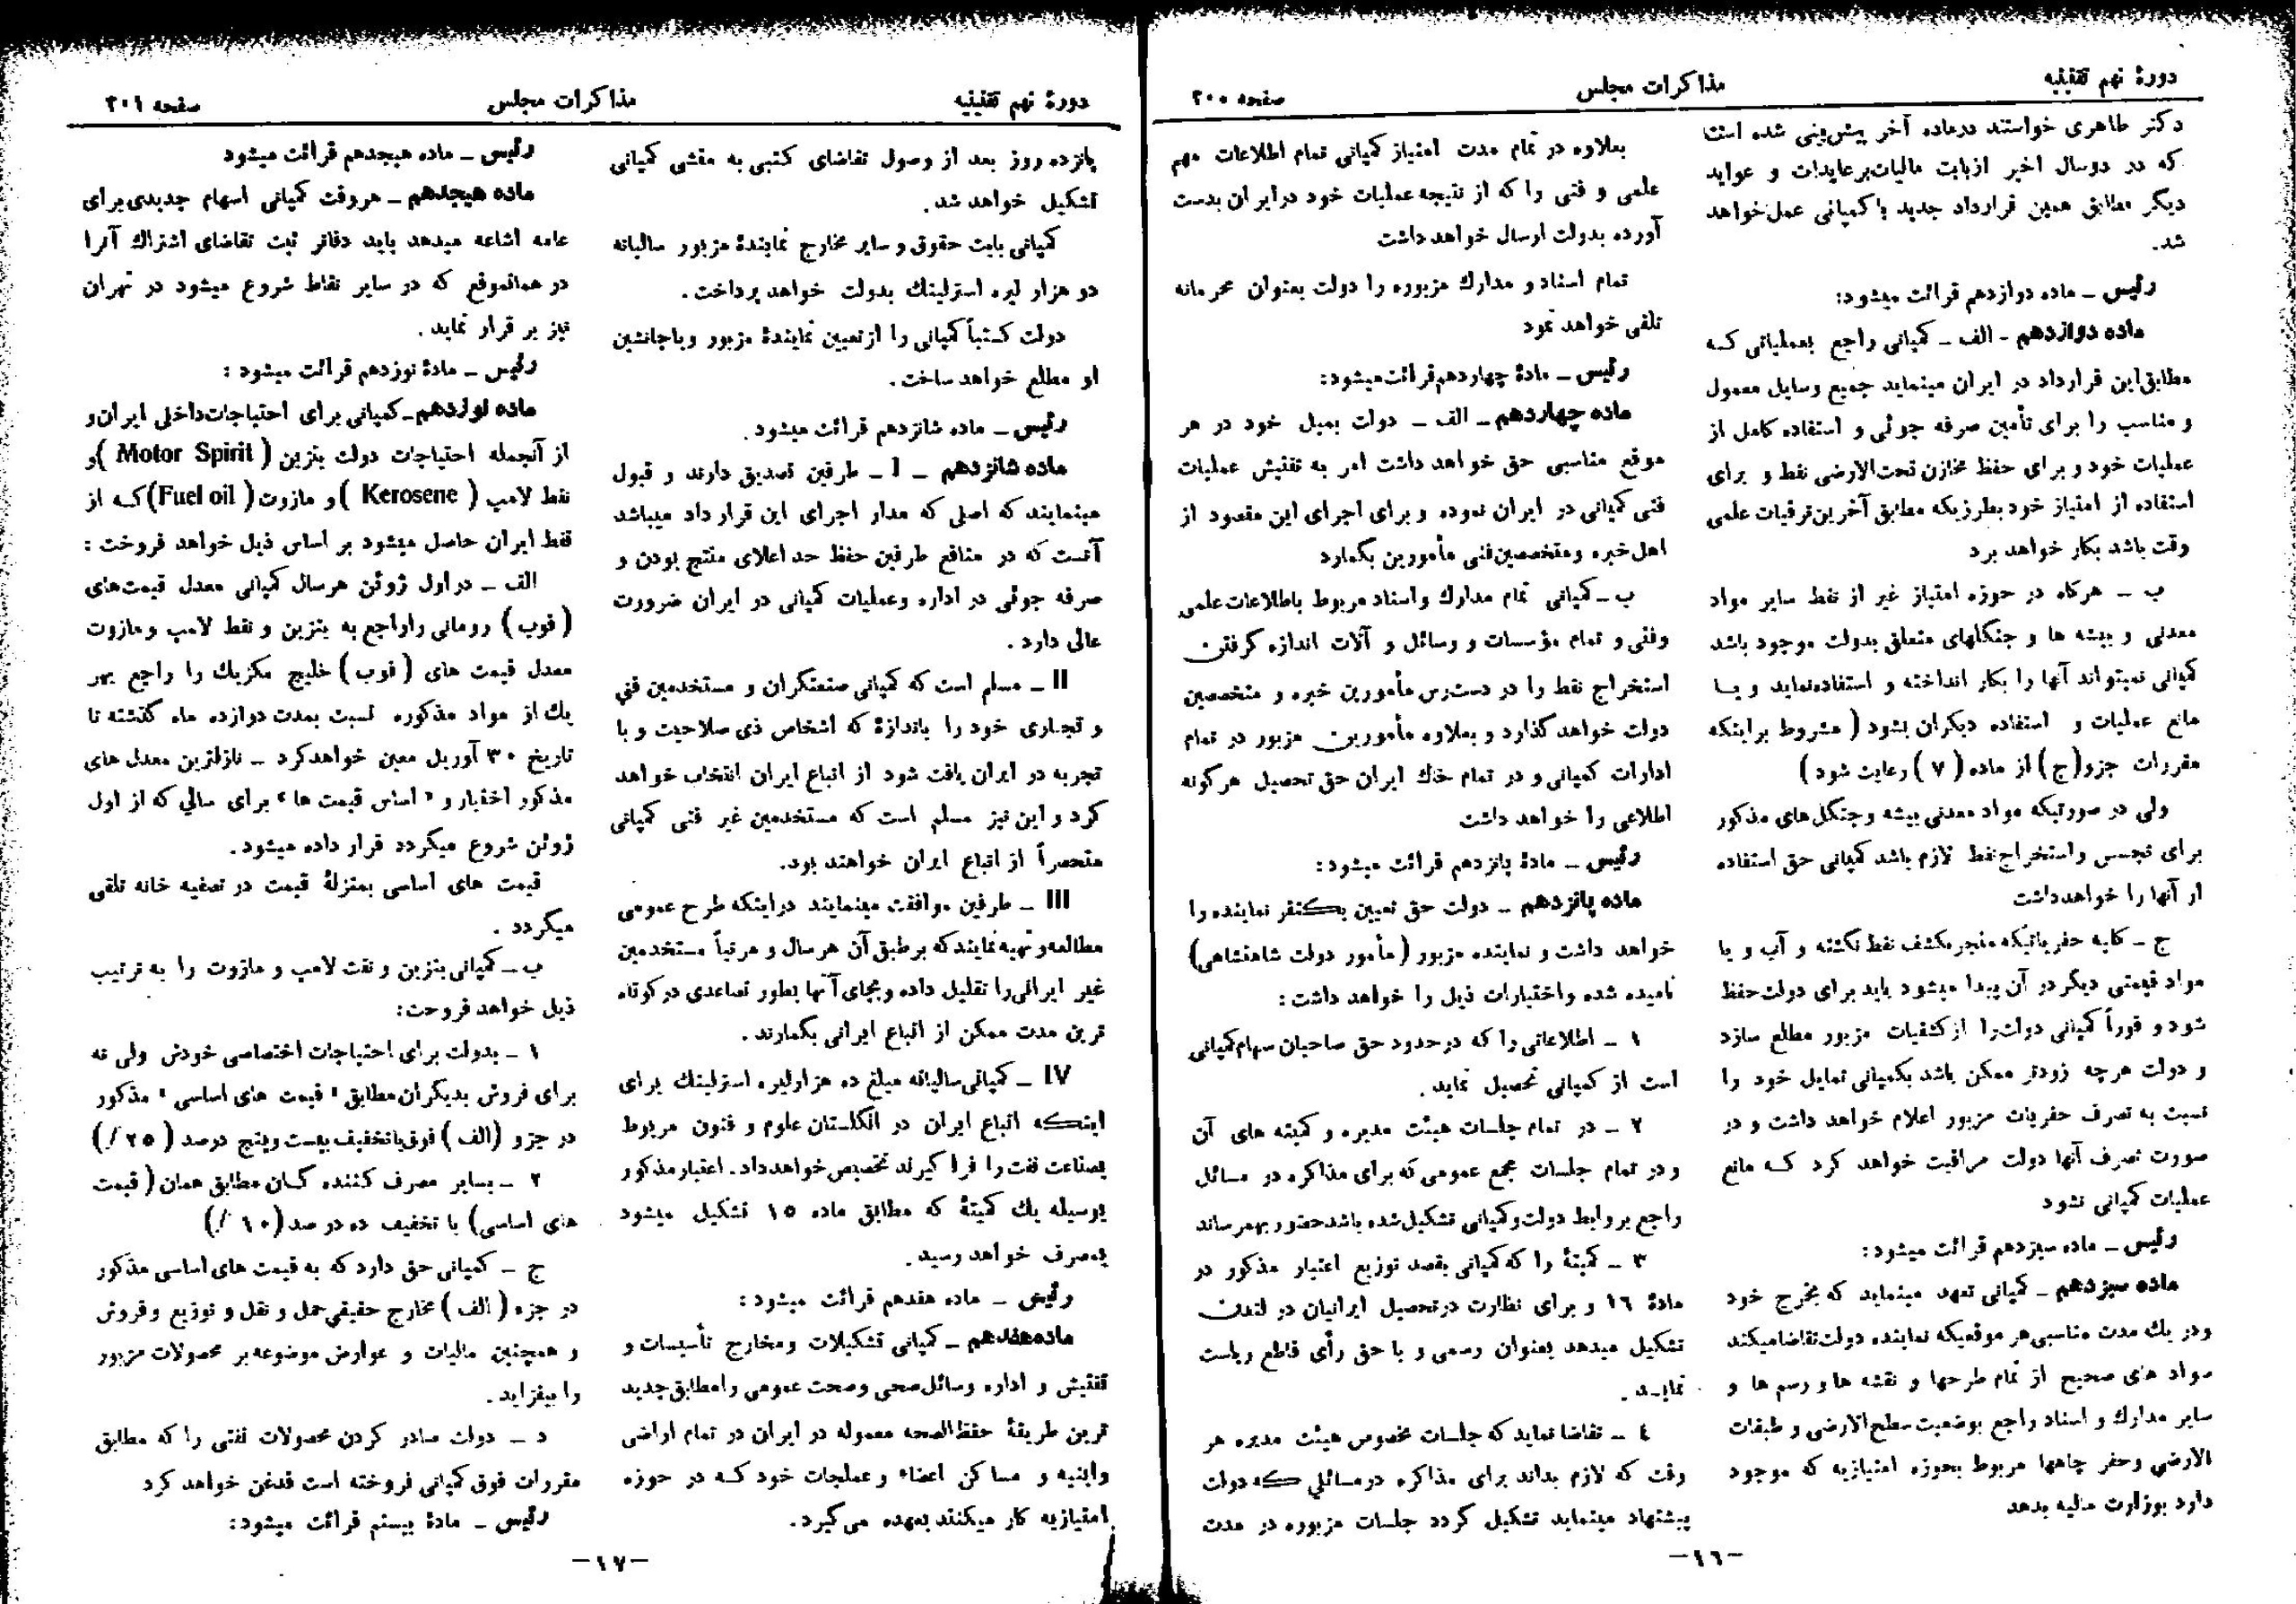 دورهٔ نهم تقنینیه
مذاکرات مجلس
صفحه ۲۰۰
دکتر طاهری خواستند درماده آخر پیش‌بینی شده است
که در دوسال اخیر ازبابت مالیات‌برعایدات و عواید
دیگر مطابق همین قرارداد جدید با کمپانی عمل‌خواهد
شد.
رئیس ـ ماده دوازدهم قرائت میشود:
ماده دوازدهم ـ الف ـ کمپانی راجع بعملیاتی کـه
مطابق‌این قرارداد در ایران مینماید جمیع وسایل معمول
و مناسب را برای تأمین صرفه جوئی و استفاده کامل از
عملیات خود و برای حفظ مخازن تحت‌الارضی نفط و برای
استفاده از امتیاز خود بطرزیکه مطابق آخرین‌ترقیات علمی
وقت باشد بکار خواهد برد
ب ـ هرگاه در حوزه امتیاز غیر از نفط سایر مواد
معدنی و بیشه ها و جنگلهای متعلق بدولت موجود باشد
کمپانی نمیتواند آنها را بکار انداخته و استفاده‌نماید و یـا
مانع عملیات و استفاده دیگران بشود ( مشروط براینکه
مقررات جزو(ج) از ماده (۷) رعایت شود )
ولی در صورتیکه مواد معدنی بیشه و جنگل‌های مذکور
برای تجسس و استخراج‌نفط لازم باشد کمپانی حق استفاده
از آنها را خواهدداشت
ج ـ کلیه حفریاتیکه منجربکشف نفط نگشته و آب و یا
مواد قیمتی دیگر در آن پیدا میشود باید برای دولت‌حفظ
شود و فوراً کمپانی دولت‌را ازکشفیات مزبور مطلع سازد
و دولت هرچه زودتر ممکن باشد بکمپانی تمایل خود را
نسبت به تصرف حفریات مزبور اعلام خواهد داشت و در
صورت تصرف آنها دولت مراقبت خواهد کرد کـه مانع
عملیات کمپانی نشود
رئیس ـ ماده سیزدهم قرائت میشود:
ماده سیزدهم ـ کمپانی تعهد مینماید که بخرج خود
ودر یك مدت مناسبی‌هر موقعیکه نماینده دولت‌تقاضا‌میکند
سواد های صحیح از تمام طرحها و نقشه ها و رسم ها و
سایر مدارك و اسناد راجع بوضعیت سطح‌الارضی و طبقات
الارضی وحفر چاهها مربوط بحوزه امتیازیه که موجود
دارد بوزارت مالیه بدهد
بعلاوه در تمام مدت امتیاز کمپانی تمام اطلاعات مهم
علمی و فنی را که از نتیجه عملیات خود درایران بدست
آورده بدولت ارسال خواهد داشت
تمام اسناد و مدارك مزبوره را دولت بعنوان محرمانه
تلقی خواهد نمود
رئیس ـ مادهٔ چهاردهم‌قرائت‌میشود:
ماده چهاردهم ـ الف ـ دولت بمیل خود در هر
موقع مناسبی حق خواهد داشت امر به تفتیش عملیات
فنی کمپانی در ایران نموده و برای اجرای این مقصود از
اهل‌خبره ومتخصصین‌فنی مأمورین بگمارد
ب ـ کمپانی تمام مدارك واسناد مربوط باطلاعات‌علمی
وفنی و تمام مؤسسات و وسائل و آلات اندازه گرفتن
استخراج نفط را در دسترس مأمورین خبره و متخصصین
دولت خواهد گذارد و بعلاوه مأمورین مزبور در تمام
ادارات کمپانی و در تمام خاك ایران حق تحصیل هرگونه
اطلاعی را خواهد داشت
رئیس ـ مادهٔ پانزدهم قرائت میشود:
ماده پانزدهم ـ دولت حق تعیین یکنفر نماینده را
خواهد داشت و نماینده مزبور (مأمور دولت شاهنشاهی)
نامیده شده واختیارات ذیل را خواهد داشت:
۱ ـ اطلاعاتی را که درحدود حق صاحبان سهام‌کمپانی
است از کمپانی تحصیل نماید.
۲ ـ در تمام جلسات هیئت مدیره و کمیته های آن
و در تمام جلسات مجمع عمومی که برای مذاکره در مسائل
راجع بروابط دولت‌و‌کمپانی تشکیل‌شده باشدحضوربهم‌رساند
۳ ـ کمیتهٔ را که کمپانی بقصد توزیع اعتبار مذکور در
مادهٔ ۱٦ و برای نظارت درتحصیل ایرانیان در لندن
تشکیل میدهد بعنوان رسمی و با حق رأی قاطع ریاست
نماید.
٤ ـ تقاضا نماید که جلسات مخصوص هیئت مدیره هر
وقت که لازم بداند برای مذاکره درمسائلی که دولت
پیشنهاد مینماید تشکیل گردد جلسات مزبوره در مدت
ـ۱٦ـ
دورهٔ نهم تقنینیه
مذاکرات مجلس
صفحه ۲۰۱
پانزده روز بعد از وصول تقاضای کتبی به منشی کمپانی
تشکیل خواهد شد.
کمپانی بابت حقوق و سایر مخارج نمایندهٔ مزبور سالیانه
دو هزار لیره استرلینك بدولت خواهد پرداخت.
دولت کتباً کمپانی را از تعیین نمایندهٔ مزبور ویاجانشین
او مطلع خواهد ساخت.
رئیس ـ ماده شانزدهم قرائت میشود.
ماده شانزدهم ـ I ـ طرفین تصدیق دارند و قبول
مینمایند که اصلی که مدار اجرای این قرار داد میباشد
آنست که در منافع طرفین حفظ حد اعلای منتج بودن و
صرفه جوئی در اداره وعملیات کمپانی در ایران ضرورت
عالی دارد.
II ـ مسلم است که کمپانی صنعتگران و مستخدمین فنی
و تجاری خود را باندازهٔ که اشخاص ذی صلاحیت و با
تجربه در ایران یافت شود از اتباع ایران انتخاب خواهد
کرد و این نیز مسلم است که مستخدمین غیر فنی کمپانی
منحصراً از اتباع ایران خواهند بود.
III ـ طرفین موافقت مینمایند دراینکه طرح عمومی
مطالعه‌و تهیه‌نمایند‌که برطبق آن هرسال و مرتباً مستخدمین
غیر ایرانی‌را تقلیل داده و بجای آنها بطور تصاعدی درکوتاه
ترین مدت ممکن از اتباع ایرانی بگمارند.
IV ـ کمپانی‌سالیانه مبلغ ده هزارلیره استرلینك برای
اینکه اتباع ایران در انگلستان علوم و فنون مربوط
بصناعت نفت را فرا گیرند تخصیص خواهدداد. اعتبار‌مذکور
بوسیله یك کمیتهٔ که مطابق ماده ۱٥ تشکیل میشود
بمصرف خواهد رسید.
رئیس ـ ماده هفدهم قرائت میشود:
ماده‌هفدهم ـ کمپانی تشکیلات ومخارج تأسیسات و
تفتیش و اداره وسائل‌صحی وصحت عمومی را‌مطابق‌جدید
ترین طریقهٔ حفظ‌الصحه معموله در ایران در تمام اراضی
وابنیه و مساکن اعضاء و عملجات خود کـه در حوزه
امتیازیه کار میکنند بعهده می‌گیرد.
رئیس ـ ماده هیجدهم قرائت میشود
ماده هیجدهم ـ هروقت کمپانی اسهام جدیدی‌برای
عامه اشاعه میدهد باید دفاتر ثبت تقاضای اشتراك آنرا
در همانموقع که در سایر نقاط شروع میشود در تهران
نیز بر قرار نماید.
رئیس ـ مادهٔ نوزدهم قرائت میشود:
ماده نوزدهم‌ـ‌کمپانی برای احتیاجات‌داخلی ایران‌و
از آنجمله احتیاجات دولت بنزین ( Motor Spirit )و
نفط لامپ ( Kerosene ) و مازوت ( Fuel oil ) که از
نفط ایران حاصل میشود بر اساس ذیل خواهد فروخت:
الف ـ در اول ژوئن هرسال کمپانی معدل قیمت‌های
( فوب ) رومانی را‌راجع به بنزین و نفط لامپ و مازوت
معدل قیمت های ( فوب ) خلیج مکزیك را راجع بهر
یك از مواد مذکوره نسبت بمدت دوازده ماه گذشته تا
تاریخ ۳۰ آوریل معین خواهد‌کرد ـ نازلترین معدل های
مذکور اختیار و « اساس قیمت ها » برای سالی که از اول
ژوئن شروع میگردد قرار داده میشود.
قیمت های اساسی بمنزلهٔ قیمت در تصفیه خانه تلقی
میگردد.
ب ـ کمپانی بنزین و نفت لامپ و مازوت را به ترتیب
ذیل خواهد فروخت:
۱ ـ بدولت برای احتیاجات اختصاصی خودش ولی نه
برای فروش بدیگران مطابق « قیمت های اساسی » مذکور
در جزو (الف) فوق‌با‌تخفیف بیست وپنج درصد (۲٥٪)
۲ ـ بسایر مصرف کننده گـان مطابق همان ( قیمت
های اساسی) با تخفیف ده در صد (۱۰٪)
ج ـ کمپانی حق دارد که به قیمت های اساسی مذکور
در جزء ( الف ) مخارج حقیقی حمل و نقل و توزیع و فروش
و همچنین مالیات و عوارض موضوعه بر محصولات مزبور
را بیفزاید.
د ـ دولت صادر کردن محصولات نفتی را که مطابق
مقررات فوق کمپانی فروخته است قدغن خواهد کرد
رئیس ـ مادهٔ بیستم قرائت میشود:
ـ۱۷ـ